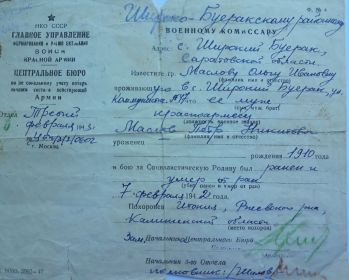 Ф. № 4
Широко-Буеракскому районному
НКО СССР
ГЛАВНОЕ УПРАВЛЕНИЕ
ВОЙСК
КРАСНОЙ АРМИИ
ЦЕНТРАЛЬНОЕ БЮРО
по персональному учету потерь
личного состава действующей
Армии
Отдел Третий
февраля
г. Москва
ВОЕННОМУ КОМИССАРУ
Адрес: с. Широкий Буерак,
Саратовской области.
Известите гр. Маслову Ольгу Ивановну
(фамилия, имя и отчество)
проживающую в с. Широкий Буерак, ул.
что ее муж
красноармеец
Маслов Петр Никитович
(фамилия имя и отчество)
уроженец
рождения 1910 года
в бою за Социалистическую Родину был ранен и
умер от ран
(убит, ранен и умер от ран)
7 февраля 1942 года.
Похоронен Ржевского р-на,
Калининской области
(место похорон)
Зам. Начальника Центрального Бюро
Начальник 3-го Отдела
полковник